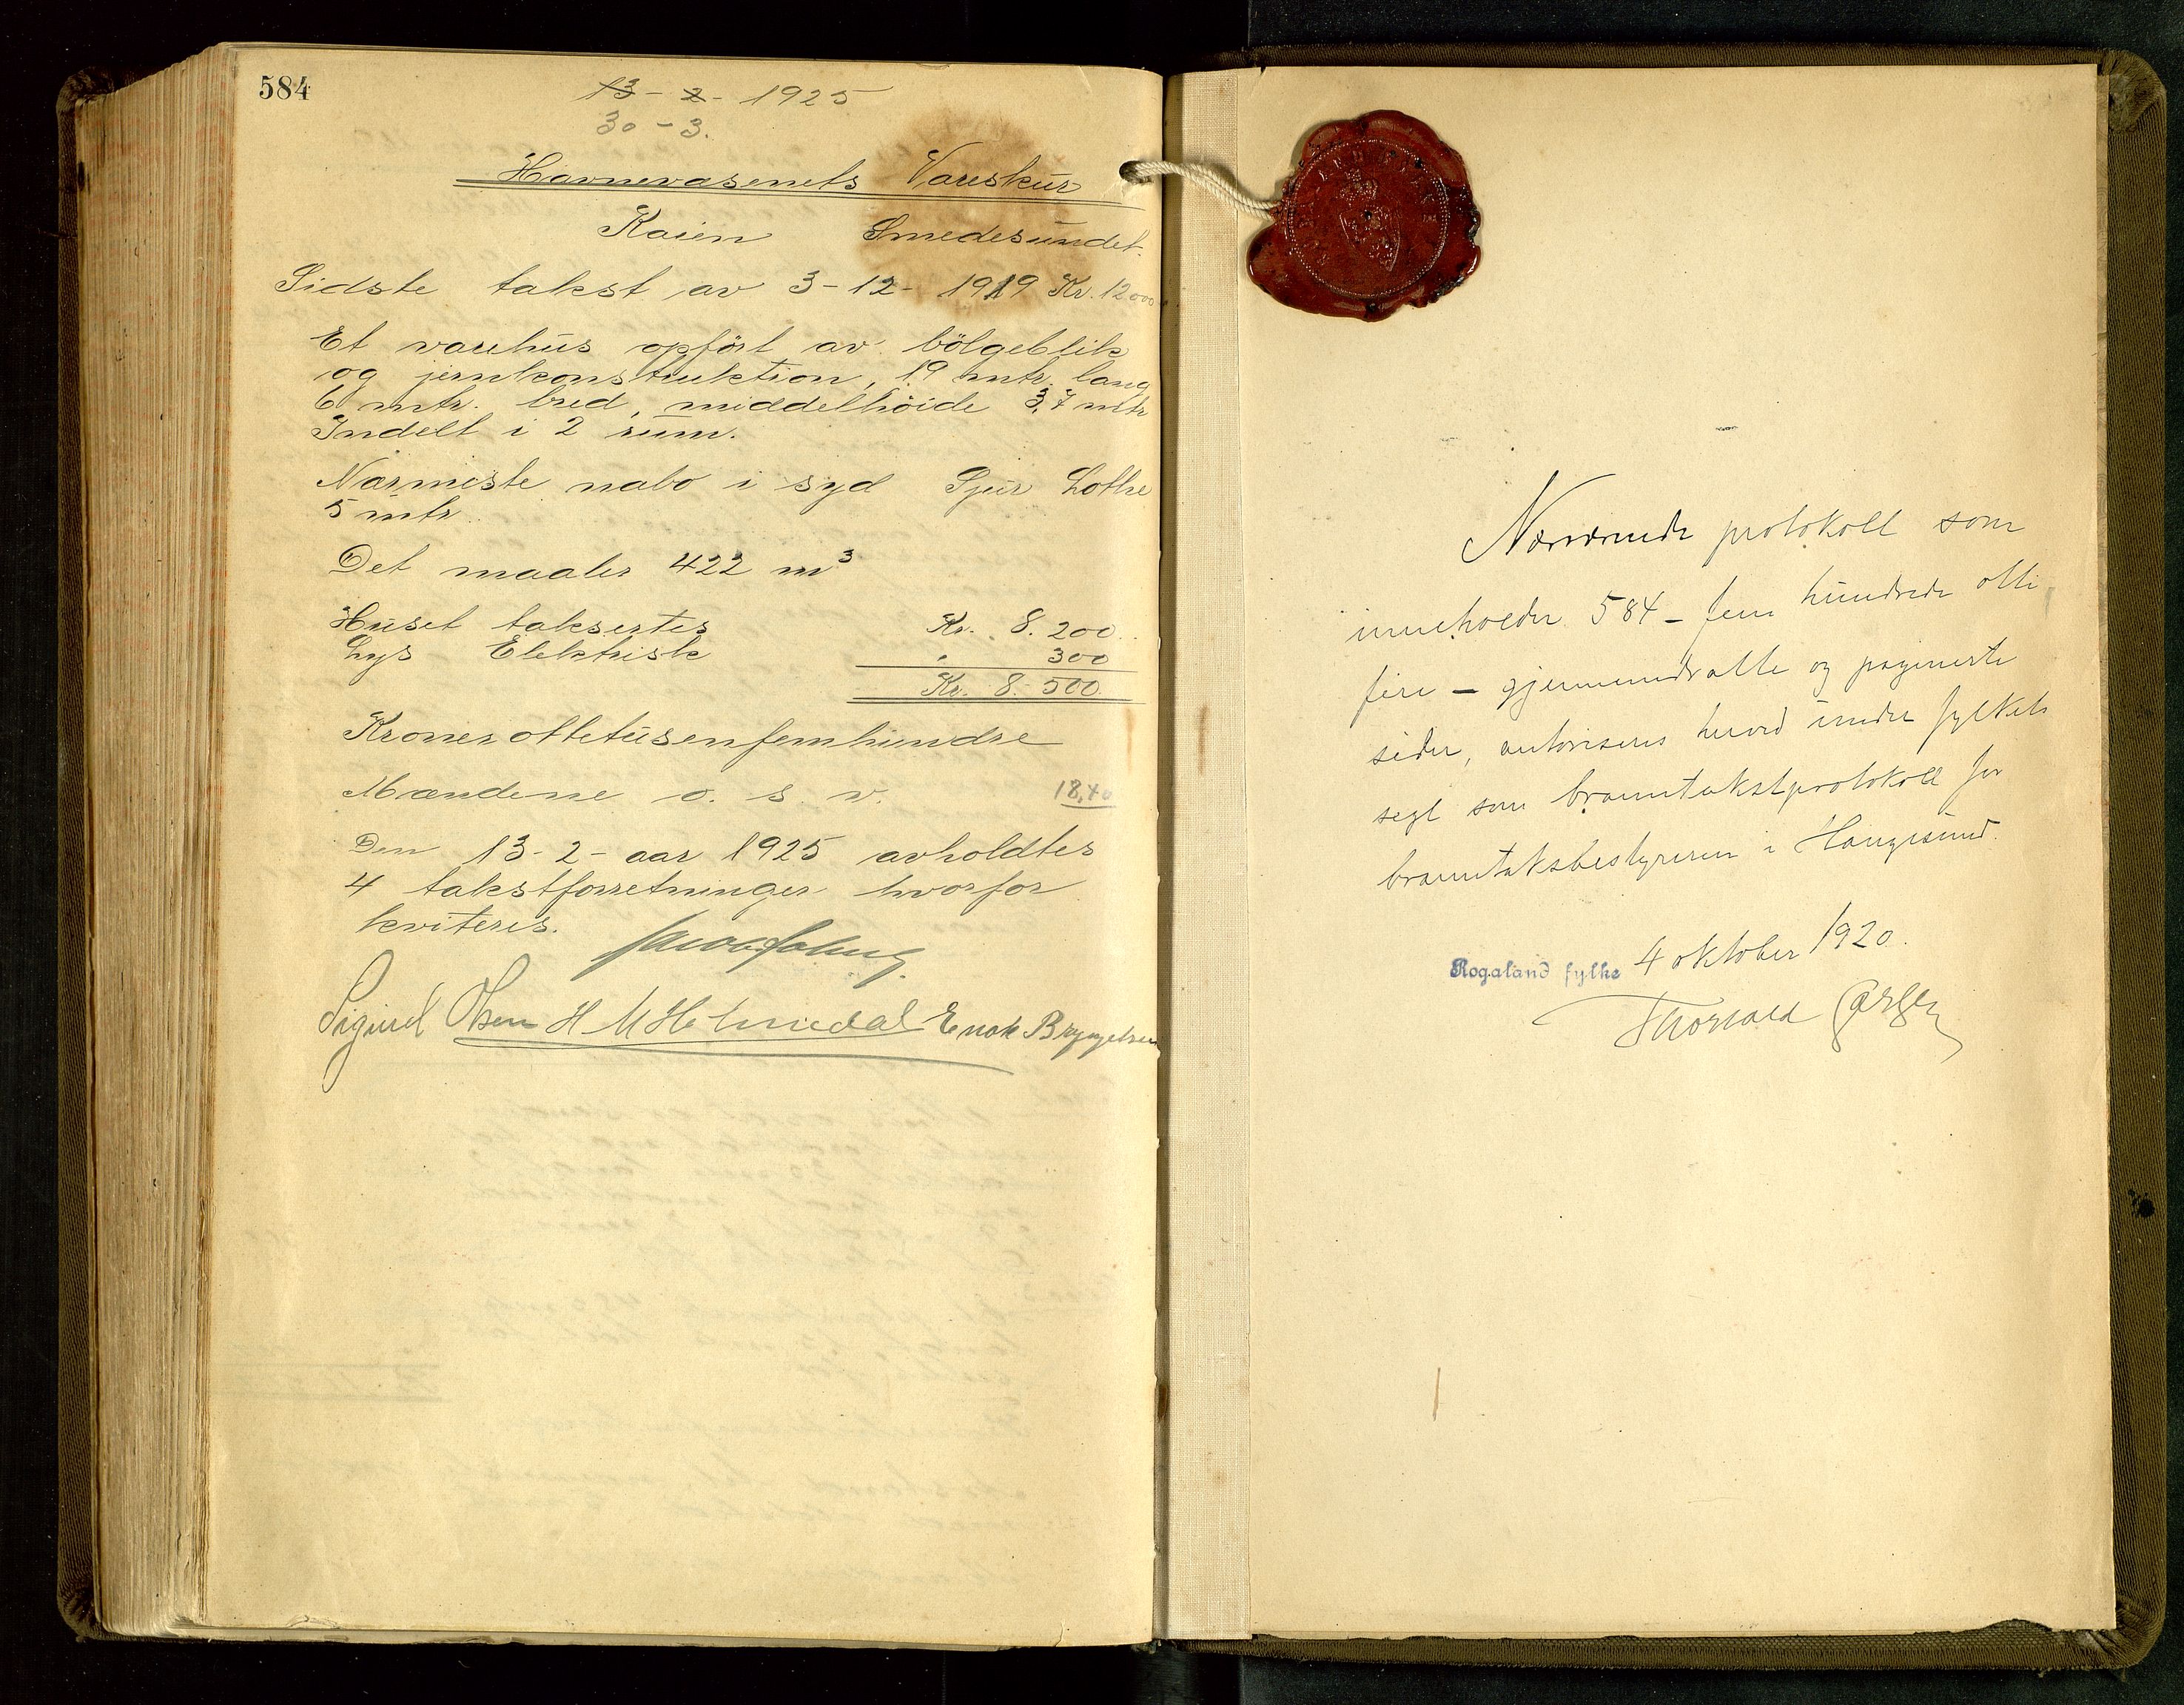 584
13 - 2 - 1925
30 - 3.
Havnevæsenets Vareskur
Kaien Smedesundet.
Sidste takst av 3 - 12 - 1919 Kr. 12000
Et varehus opført av bölgeblik
og jernkonstruktion, 19 mtr. lang
6 mtr. bred, middelhöide 3,7 mtr
Indelt i 2 rum.
Nærmeste nabo i syd Sjur Lothe
5 mtr.
Det maaler 422 m³
Huset taksertes Kr. 8.200
Lys Elektrisk " 300
Kr. 8.500
Kroner ottetusenfemhundre
Mændene o. s. v. 18,40
Den 13 - 2 - aar 1925 avholdtes
4 takstforretninger hvorfor
kviteres.
Sigurd Olsen H M Helmedal Enok Bryngelsen
Nærværende protokoll som
inneholder 584 - fem hundrede otti
fire - gjennemdratte og paginerte
sider, autoriseres herved under fylkets
segl som branntakstprotokoll for
branntakstbestyreren i Haugesund.
Rogaland fylke 4 oktober 1920.
Thorvald